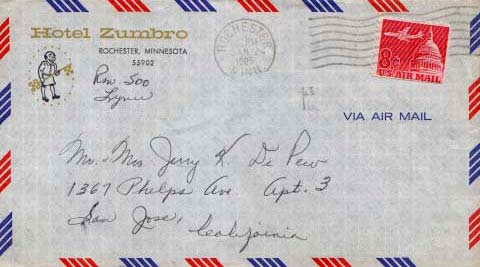 Hotel Zumbro
ROCHESTER, MINNESOTA
55902
Rm. 500
Lynn
ROCHESTER
PM
1965
MINN.
8c
U.S. AIR MAIL
VIA AIR MAIL
Mr. & Mrs Jerry K. De Pew
1367 Phelps Ave Apt. 3
San Jose,
California